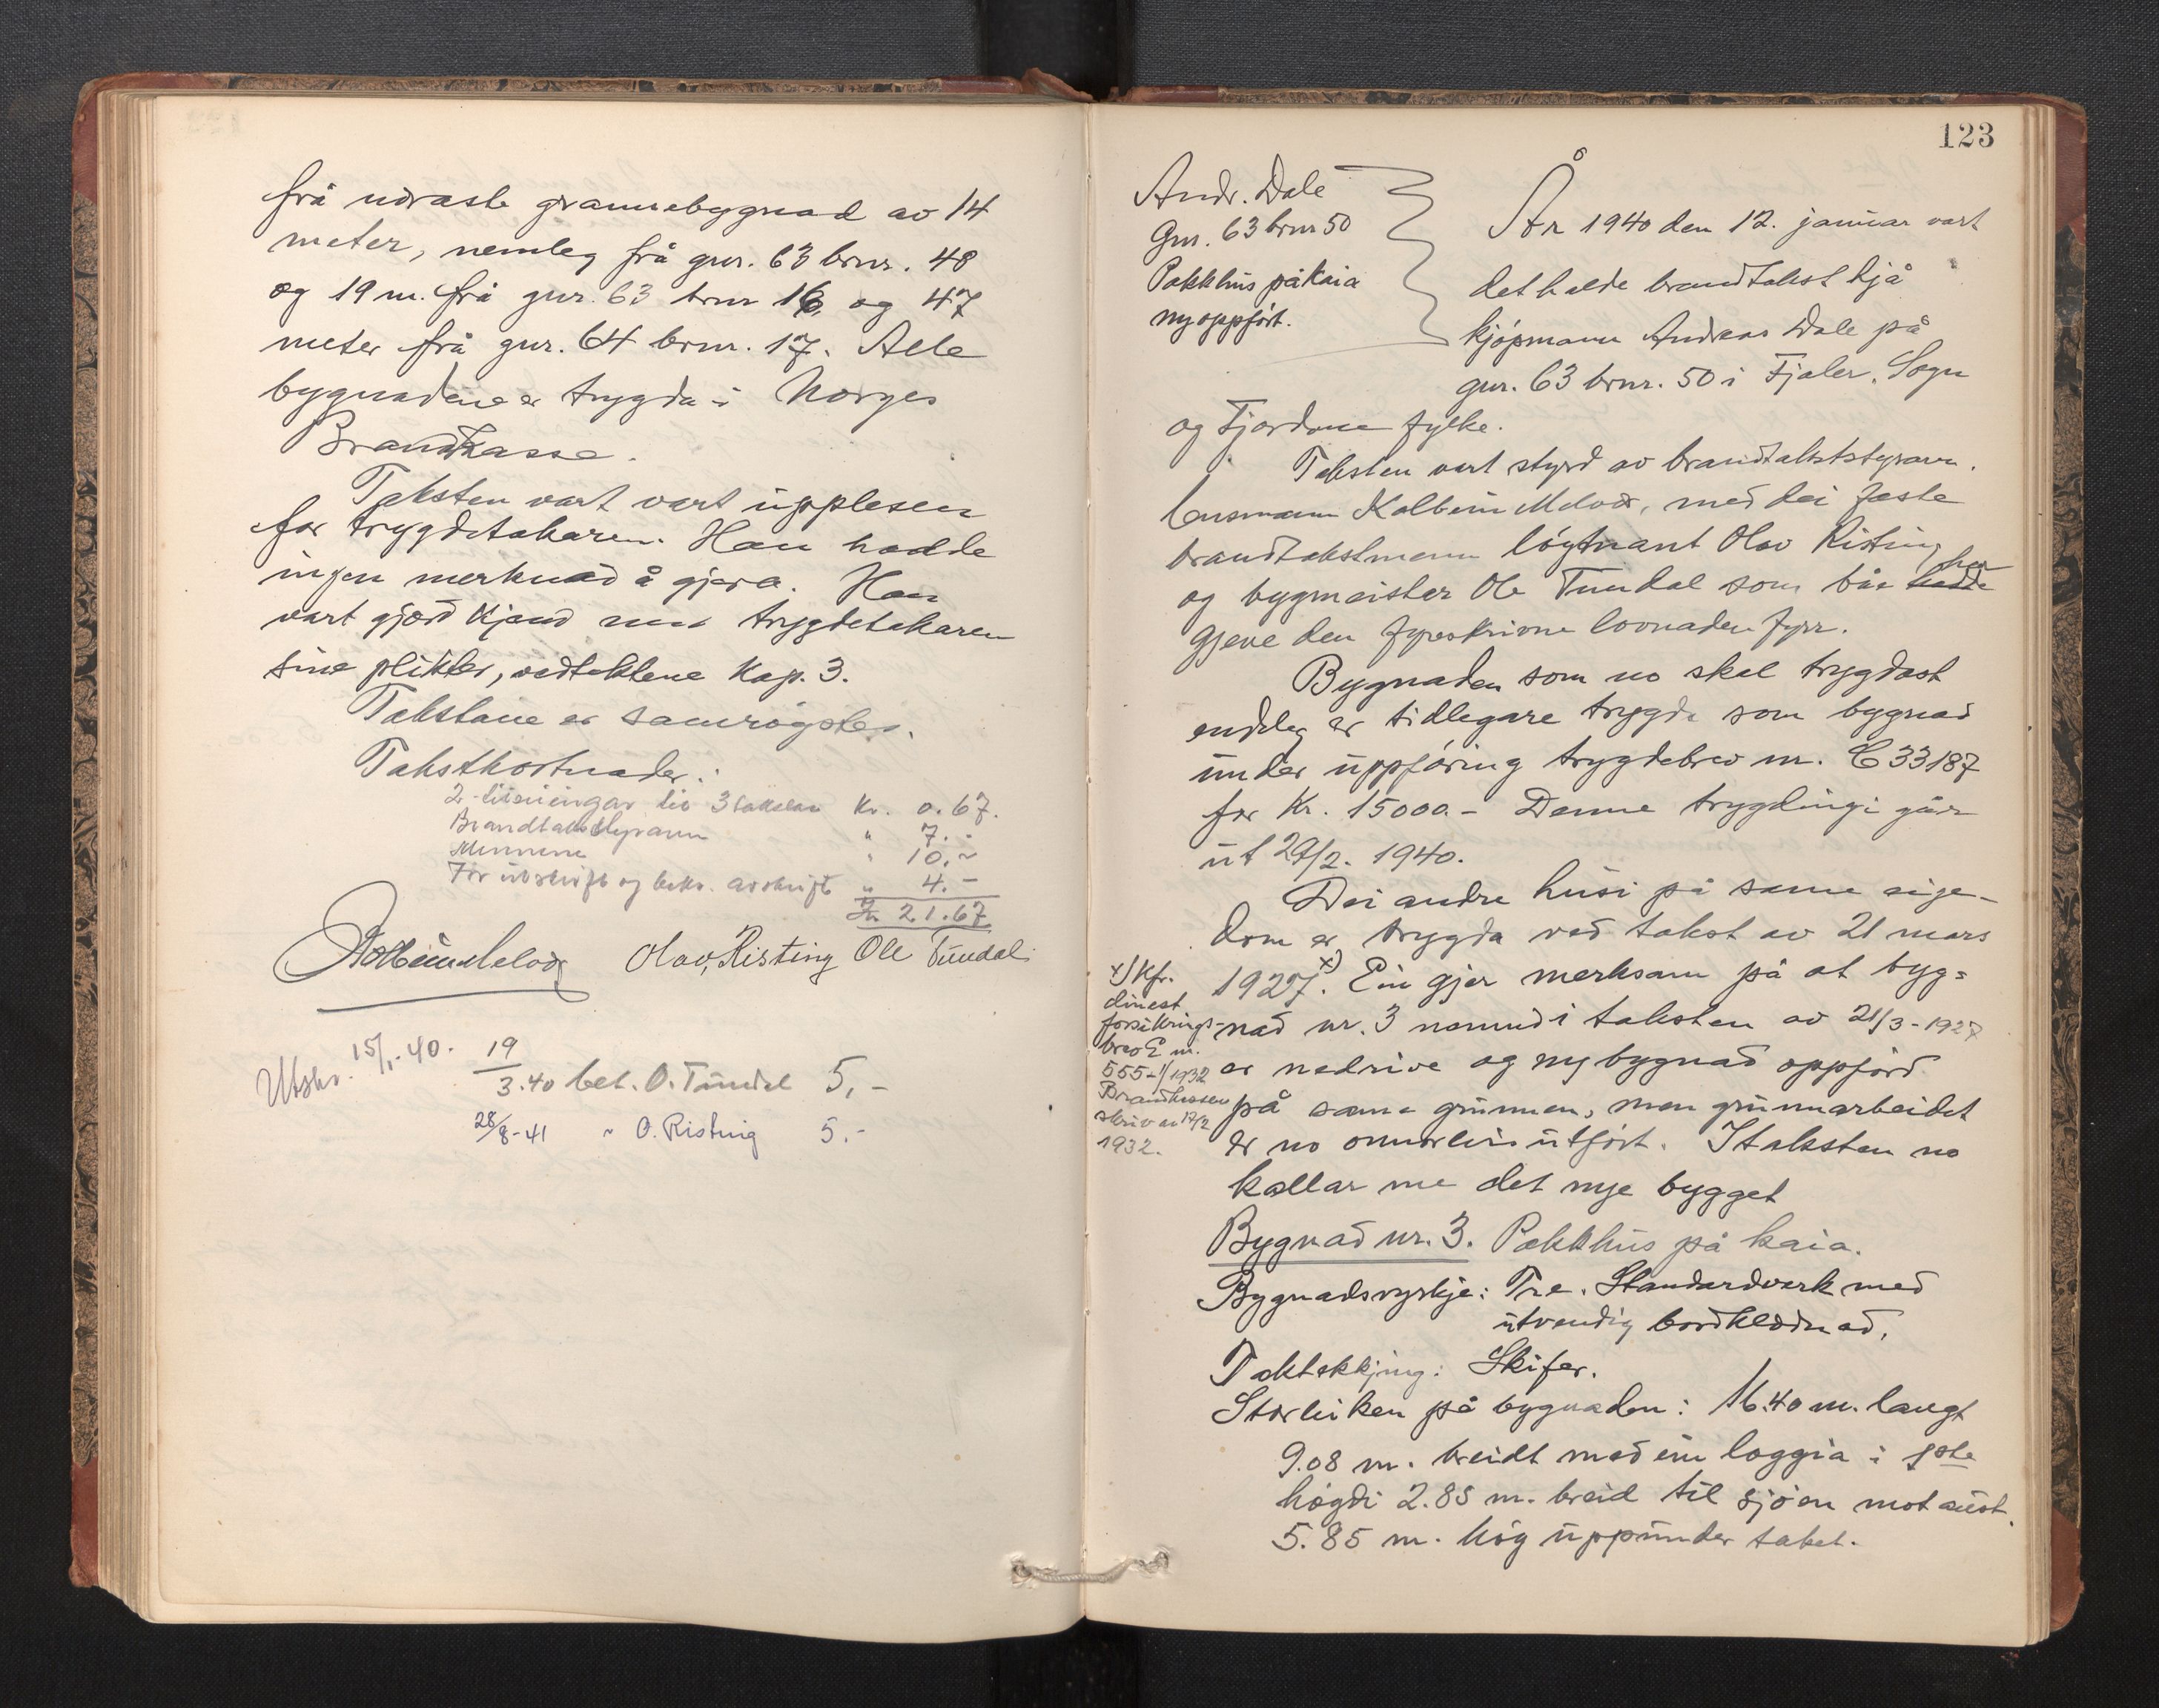 frå næraste grannebygnad av 14
meter, nemleg frå gnr. 63 brnr. 48
og 19 m. frå gnr. 63 brnr 16 og 47
meter frå gnr. 64 brnr. 17. Alle
bygnadene er trygda i Norges
Brandkasse.
Taksten vart vart upplesen
for trygdetakaren. Han hadde
ingen merknad å gjera. Han
vart gjord kjend med trygdetakaren
sine plikter, vedtektene kap. 3.
Takstane er samrøystes.
Takstkostnader:
2 lysningar til 3 takstar Kr. 0.67.
Brandtakststyraren " 7.-
Mennene " 10.-
For utskrift og bekr. avskrift " 4.-
Kr 21.67
Kolbein Melvær Olav Risting Ole Tundal
Utskr. 15/1-40.
19/3.40 bet. O. Tundal 5,-
28/8-41 " O. Risting 5.-
123
Andr. Dale
Gnr. 63 brnr 50
Pakkhus på kaia
ny oppført.
År 1940 den 12. januar vart
det halde brandtakst hjå
kjøpmann Andreas Dale på
gnr. 63 brnr. 50 i Fjaler, Sogn
og Fjordane fylke.
Taksten vart styrd av brandtakststyraren.
lensmann Kolbein Melvær, med dei faste
brandtakstmenn løytnant Olav Risting
og bygmeister Ole Tundal som båe hadde har
gjeve den fyreskrivne lovnaden fyrr.
Bygnaden som no skal trygdast
endeleg er tidlegare trygda som bygnad
under uppføring trygdebrev nr. C 33187
for Kr. 15000.- Denne trygdingi går
ut 29/2. 1940.
Dei andre husi på same eige-
dom er trygda ved takst av 21 mars
1927. x) Ein gjer merksam på at byg=
nad nr. 3 nemnd i taksten av 21/3-1927
er nedrive og ny bygnad oppførd
på same grunnen, men grunnarbeidet
er no onnorleis utført. I taksten no
kallar me det nye bygget
x) Kfr.
forsikrings-
brev E nr.
1932
Brandkassen
skriv av
1932.
Bygnad nr. 3. Pakkhus på kaia.
Bygnadsvyrkje: Tre. Standardverk med
utvendig bordklædnad.
Taktekkjing: Skifer.
Storleiken på bygnaden: 16.40 m. langt
9.08 m. breidt med ein loggia i 1ste
høgdi 2.85 m. breid til sjøen mot aust.
5.85 m. høg uppunder taket.